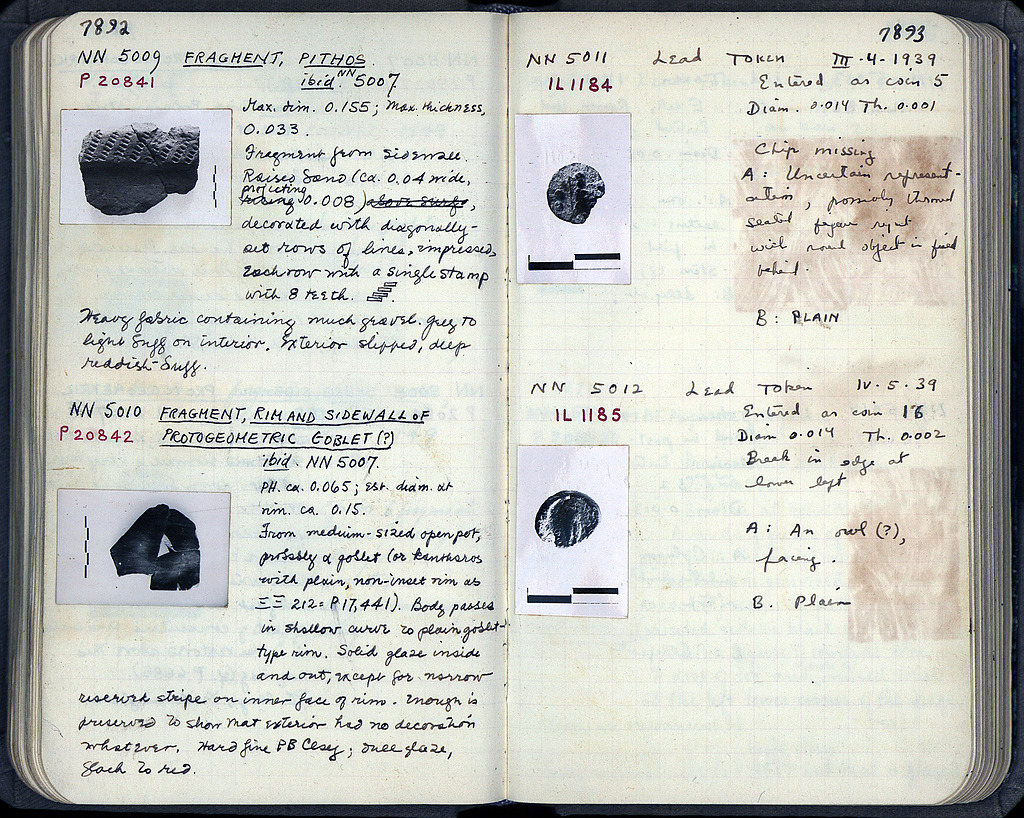 7892
NN 5009 FRAGMENT, PITHOS.
P 20841 ibid. NN 5007.
Max. dim. 0.155; Max. thickness,
0.033.
Fragment from sidewall.
Raised band (ca. 0.04 wide,
projecting
0.008),
decorated with diagonally-
set rows of lines, impressed,
each row with a single stamp
with 8 teeth.
Heavy fabric containing much gravel. Grey to
light buff on interior. Exterior slipped, deep
reddish-buff.
NN 5010 FRAGMENT, RIM AND SIDEWALL OF
P 20842 PROTOGEOMETRIC GOBLET (?)
ibid. NN 5007.
PH. ca. 0.065; est. diam. at
rim. ca. 0.15.
From medium-sized open pot,
probably a goblet (or kantharos
with plain, non-inset rim as
ΞΞ 212 = P 17,441). Body passes
in shallow curve to plain goblet-
type rim. Solid glaze inside
and out, except for narrow
reserved stripe on inner face of rim. Enough is
preserved to show that exterior had no decoration
whatever. Hard fine PB clay; dull glaze,
black to red.
7893
NN 5011 Lead Token III-4-1939
IL 1184 Entered as coin 5
Diam. 0.014 Th. 0.001
Chip missing
A: Uncertain represent-
ation, possibly throned
seated figure right
with round object in field
behind.
B: PLAIN
NN 5012 Lead Token IV-5-39
IL 1185 Entered as coin 18
Diam 0.014 Th. 0.002
Break in edge at
lower left
A: An owl (?),
facing.
B. Plain